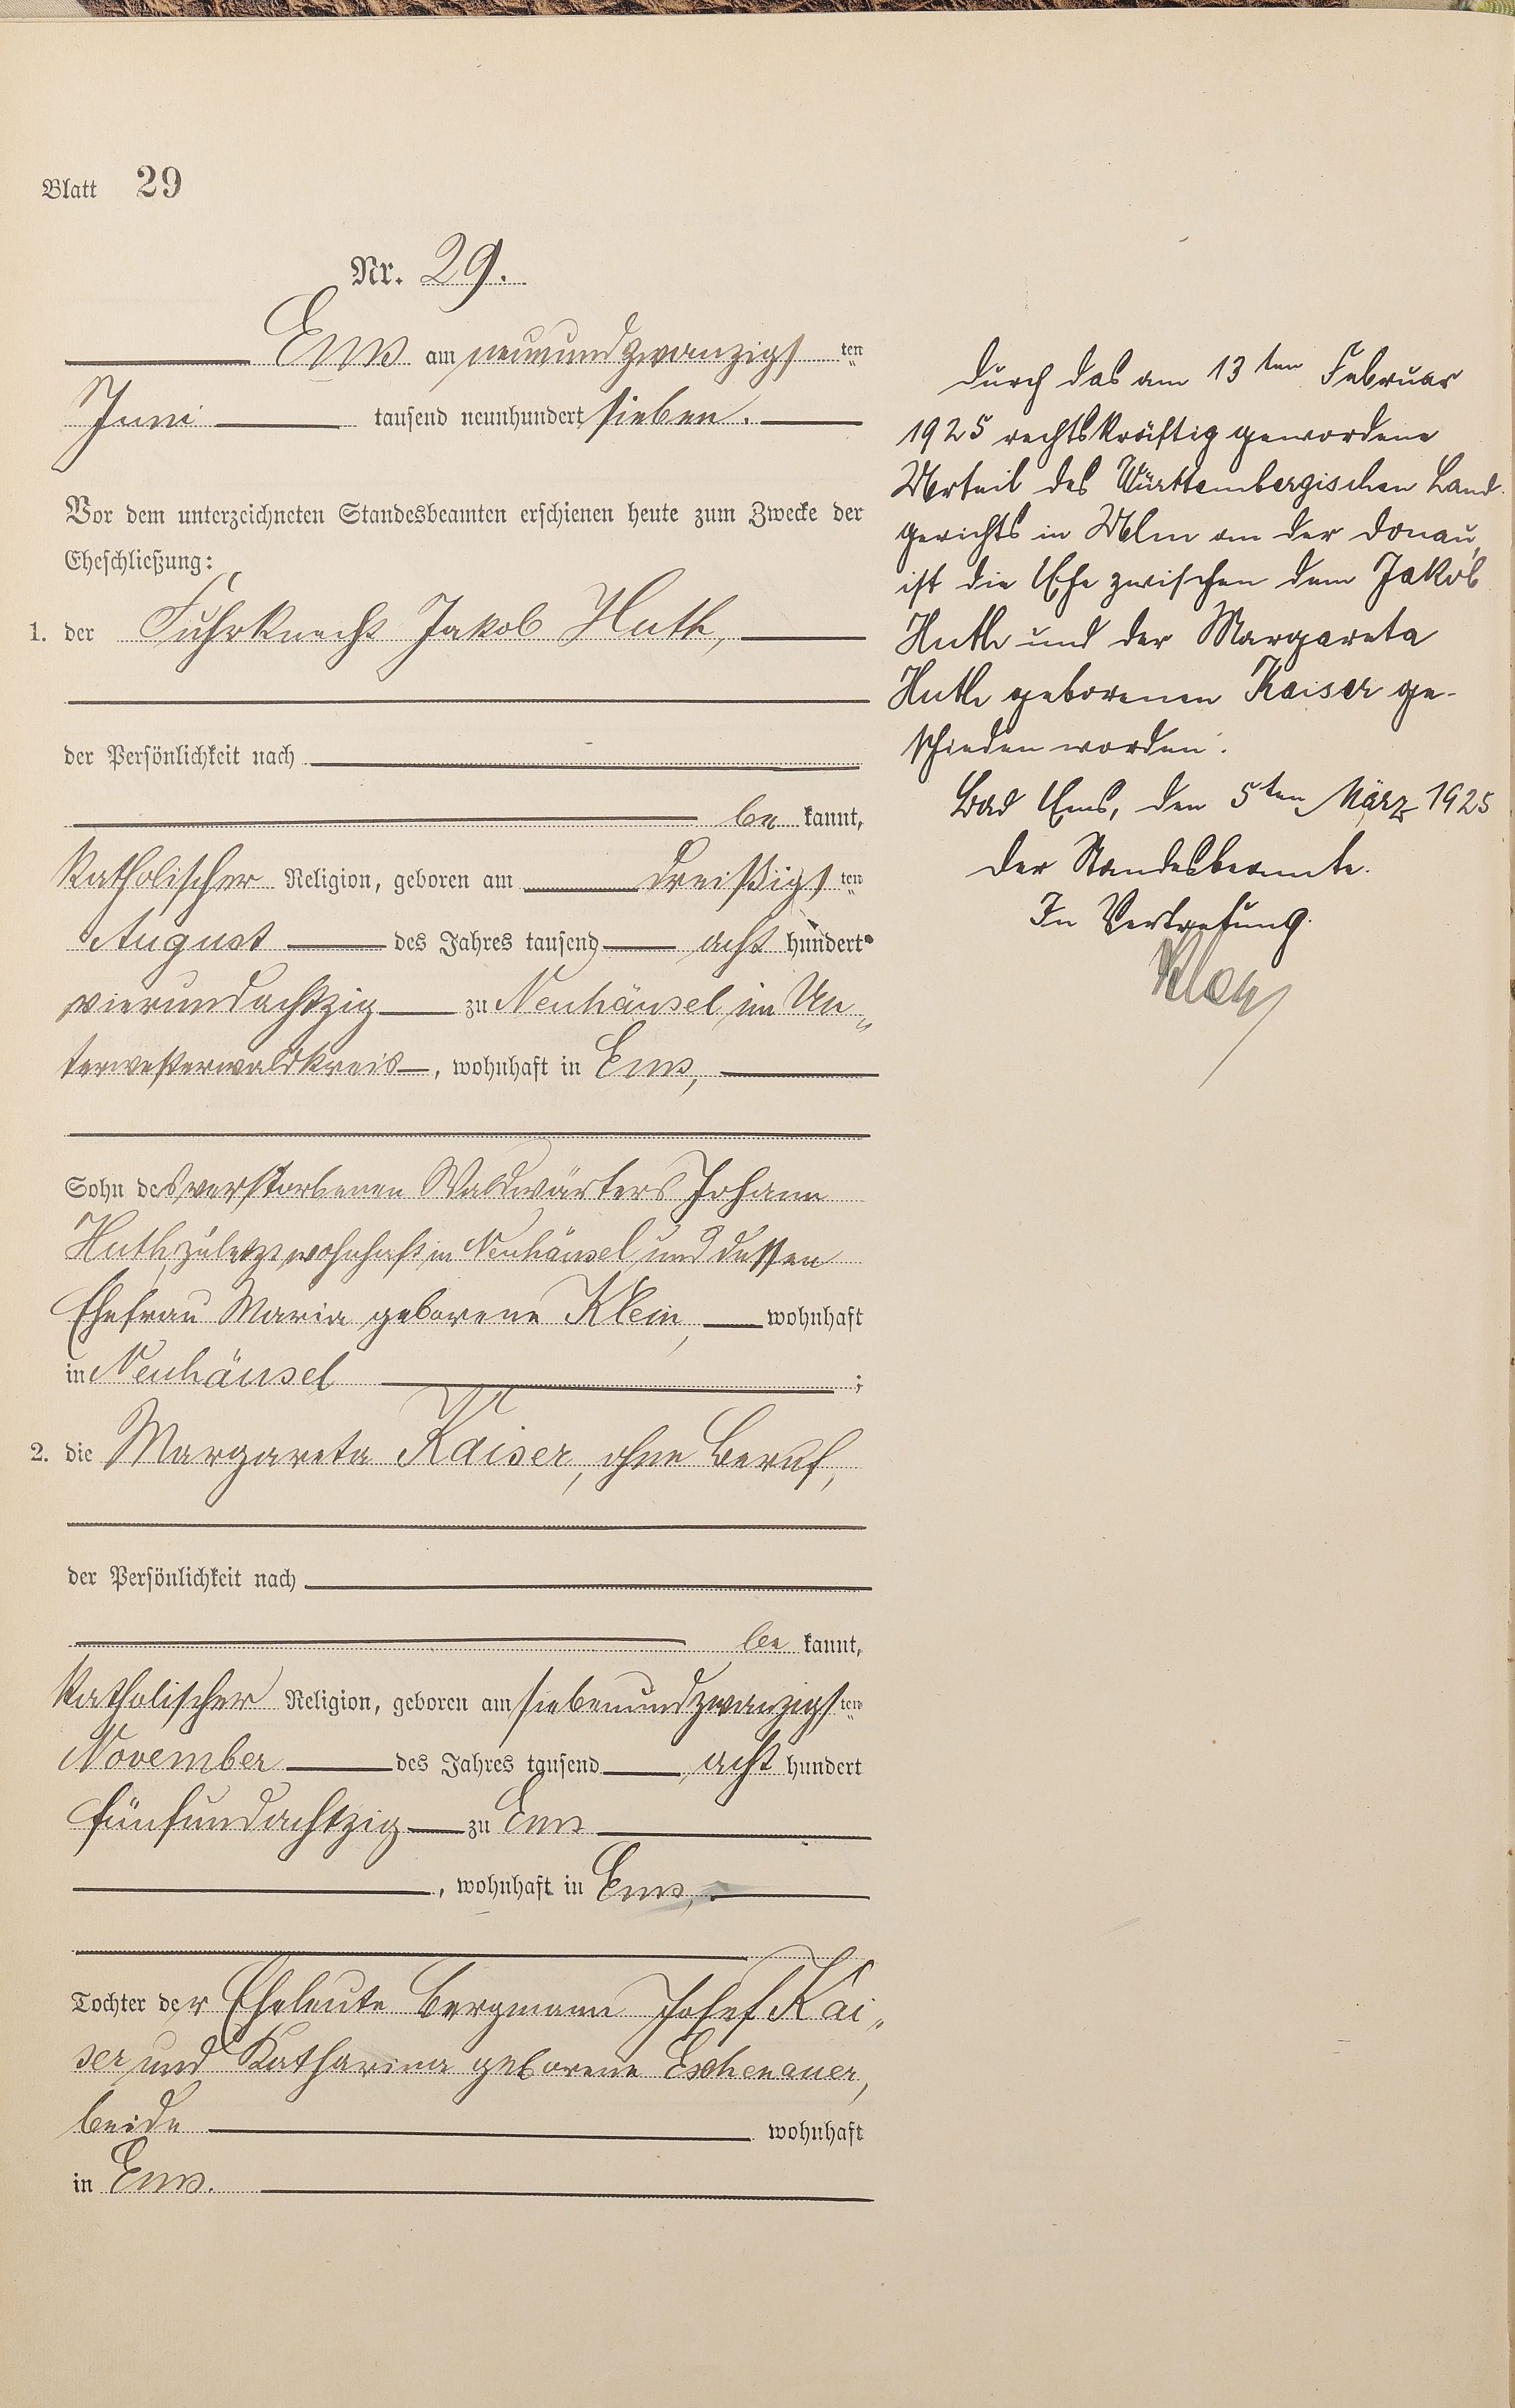 Blatt 29
Nr. 29.
Ems am neunundzwanzigsten
Juni tausend neunhundert sieben.
Vor dem unterzeichneten Standesbeamten erschienen heute zum Zwecke der
Eheschließung:
1. der Fuhrknecht Jakob Huth,
der Persönlichkeit nach
be kannt,
katholischer Religion, geboren am dreißigsten
August des Jahres tausend acht hundert
vierundachtzig zu Neuhäusel im Un„
terwesterwaldkreis, wohnhaft in Ems,
Sohn des verstorbenen Waldwärters Johann
Huth, zuletzt wohnhaft in Neuhäusel und dessen
Ehefrau Maria geborene Klein, wohnhaft
in Neuhäusel ;
2. die Margareta Kaiser, ohne Beruf,
der Persönlichkeit nach
be kannt,
katholischer Religion, geboren am siebenundzwanzigsten
November des Jahres tausend acht hundert
fünfundachtzig zu Ems
, wohnhaft in Ems,
Tochter der Eheleute Bergmann Josef Kai„
ser und Katharina geborene Eschenauer,
beide wohnhaft
in Ems.
Durch das am 13ten Februar
1925 rechtskräftig gewordene
Urteil des Württembergischen Land-
gerichts in Ulm an der Donau,
ist die Ehe zwischen dem Jakob
Huth und der Margareta
Huth geborenen Kaiser ge-
schieden worden.
Bad Ems, den 5ten März 1925
Der Standesbeamte.
In Vertretung.